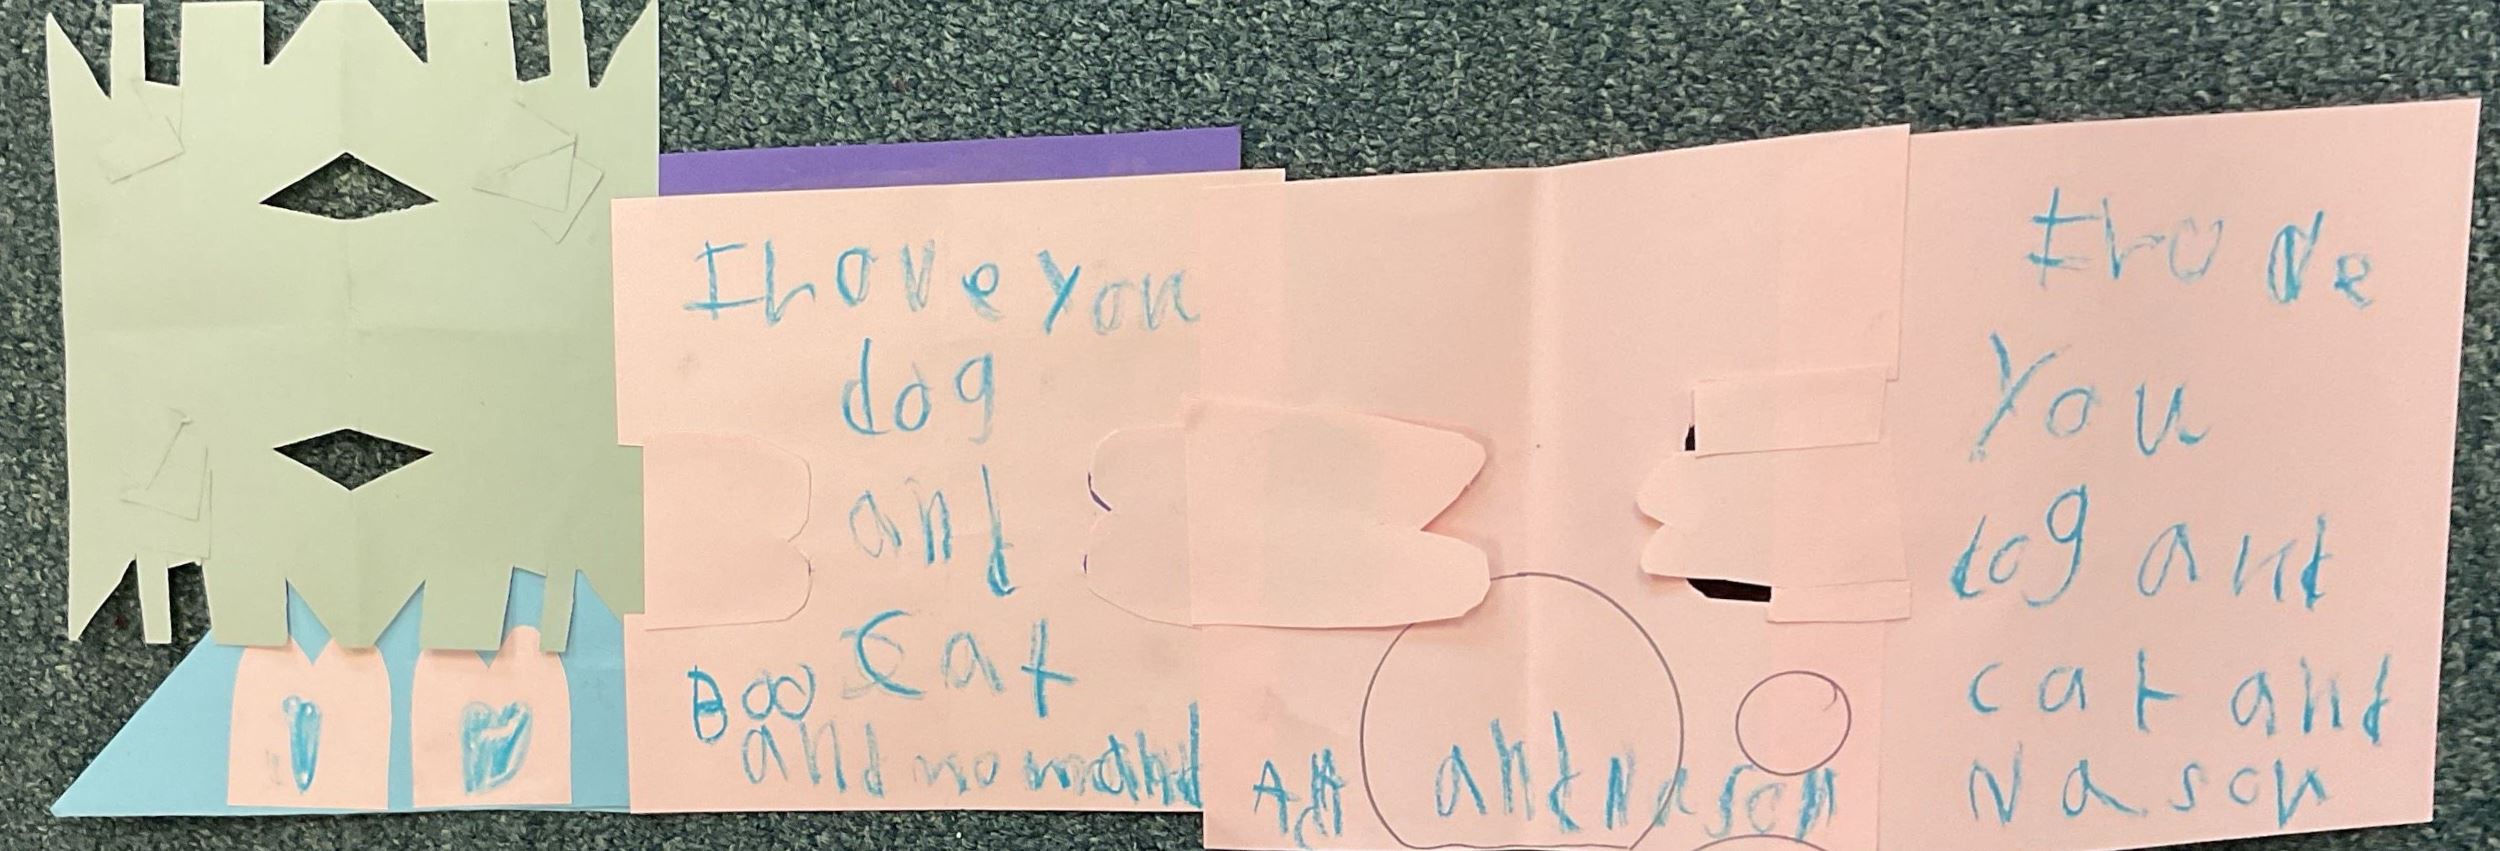 I Love you
dog
and
Cat
Boo
and mom and
and Nason
I Love
You
dog and
cat and
Nason